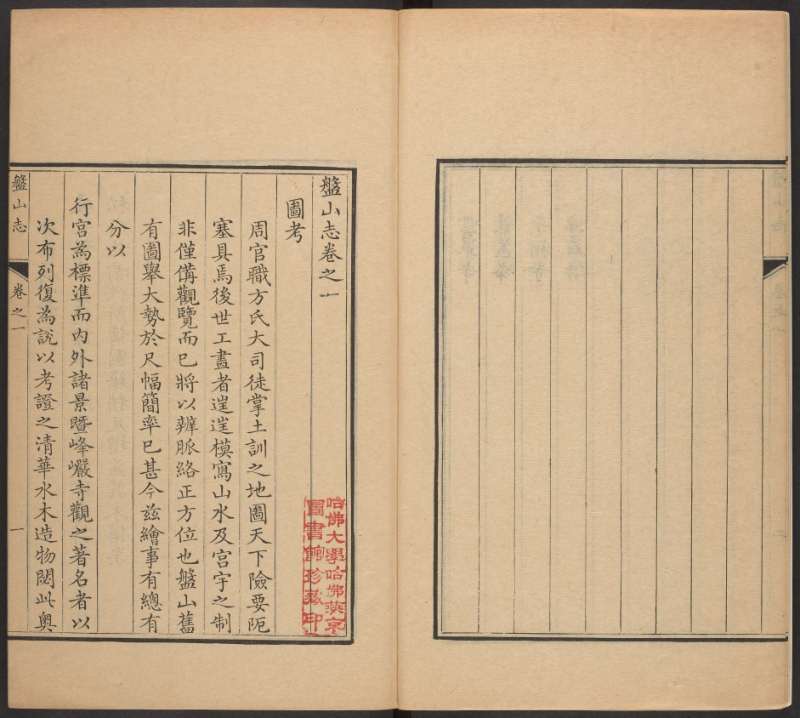 盤山志卷之一
圖考
周官職方氏大司徒掌土訓之地圖天下險要阨
塞具焉後世工畫者遑遑模寫山水及宮宇之制
非僅備觀覽而已將以辨脈絡正方位也盤山舊
有圖舉大勢於尺幅簡率已甚今茲繪事有總有
分以
行宮為標準而內外諸景暨峰巖寺觀之著名者以
次布列復為說以考證之清華水木造物閟此奧
盤山志
卷之一
一
哈佛大學哈佛燕京
圖書館珍藏印